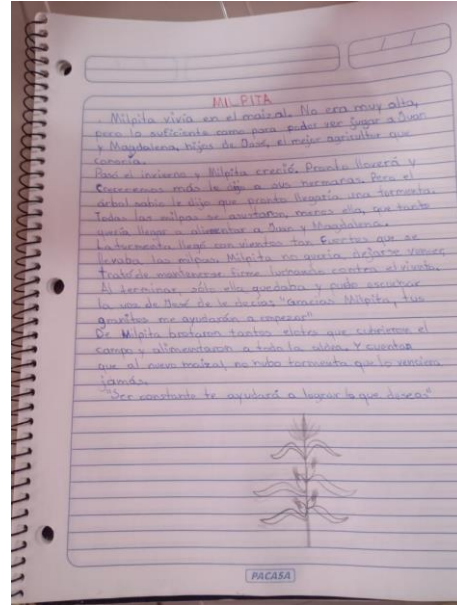 MILPITA
. Milpita vivía en el maizal. No era muy alta,
pero lo suficiente como para poder ver jugar a Juan
y Magdalena, hijos de José, el mejor agricultor que
conocía.
Pasó el invierno y Milpita creció. Pronto lloverá y
creceremos más le dijo a sus hermanas. Pero el
árbol sabio le dijo que pronto llegaría una tormenta.
Todas las milpas se asustaron, menos ella, que tanto
quería llegar a alimentar a Juan y Magdalena.
La tormenta llegó con vientos tan fuertes que se
llevaba, las milpas. Milpita no quería dejarse vencer,
trató de mantenerse firme luchando contra el viento.
Al terminar, sólo ella quedaba y pudo escuchar
la voz de José de le decías "Gracias Milpita, tus
granitos me ayudarán a empezar"
De Milpita brotaron tantos elotes que cubrieron el
campo y alimentaron a toda la aldea. Y cuentan
que al nuevo maizal, no hubo tormenta que lo venciera
jamás.
"Ser constante te ayudará a lograr lo que deseas"
PACASA